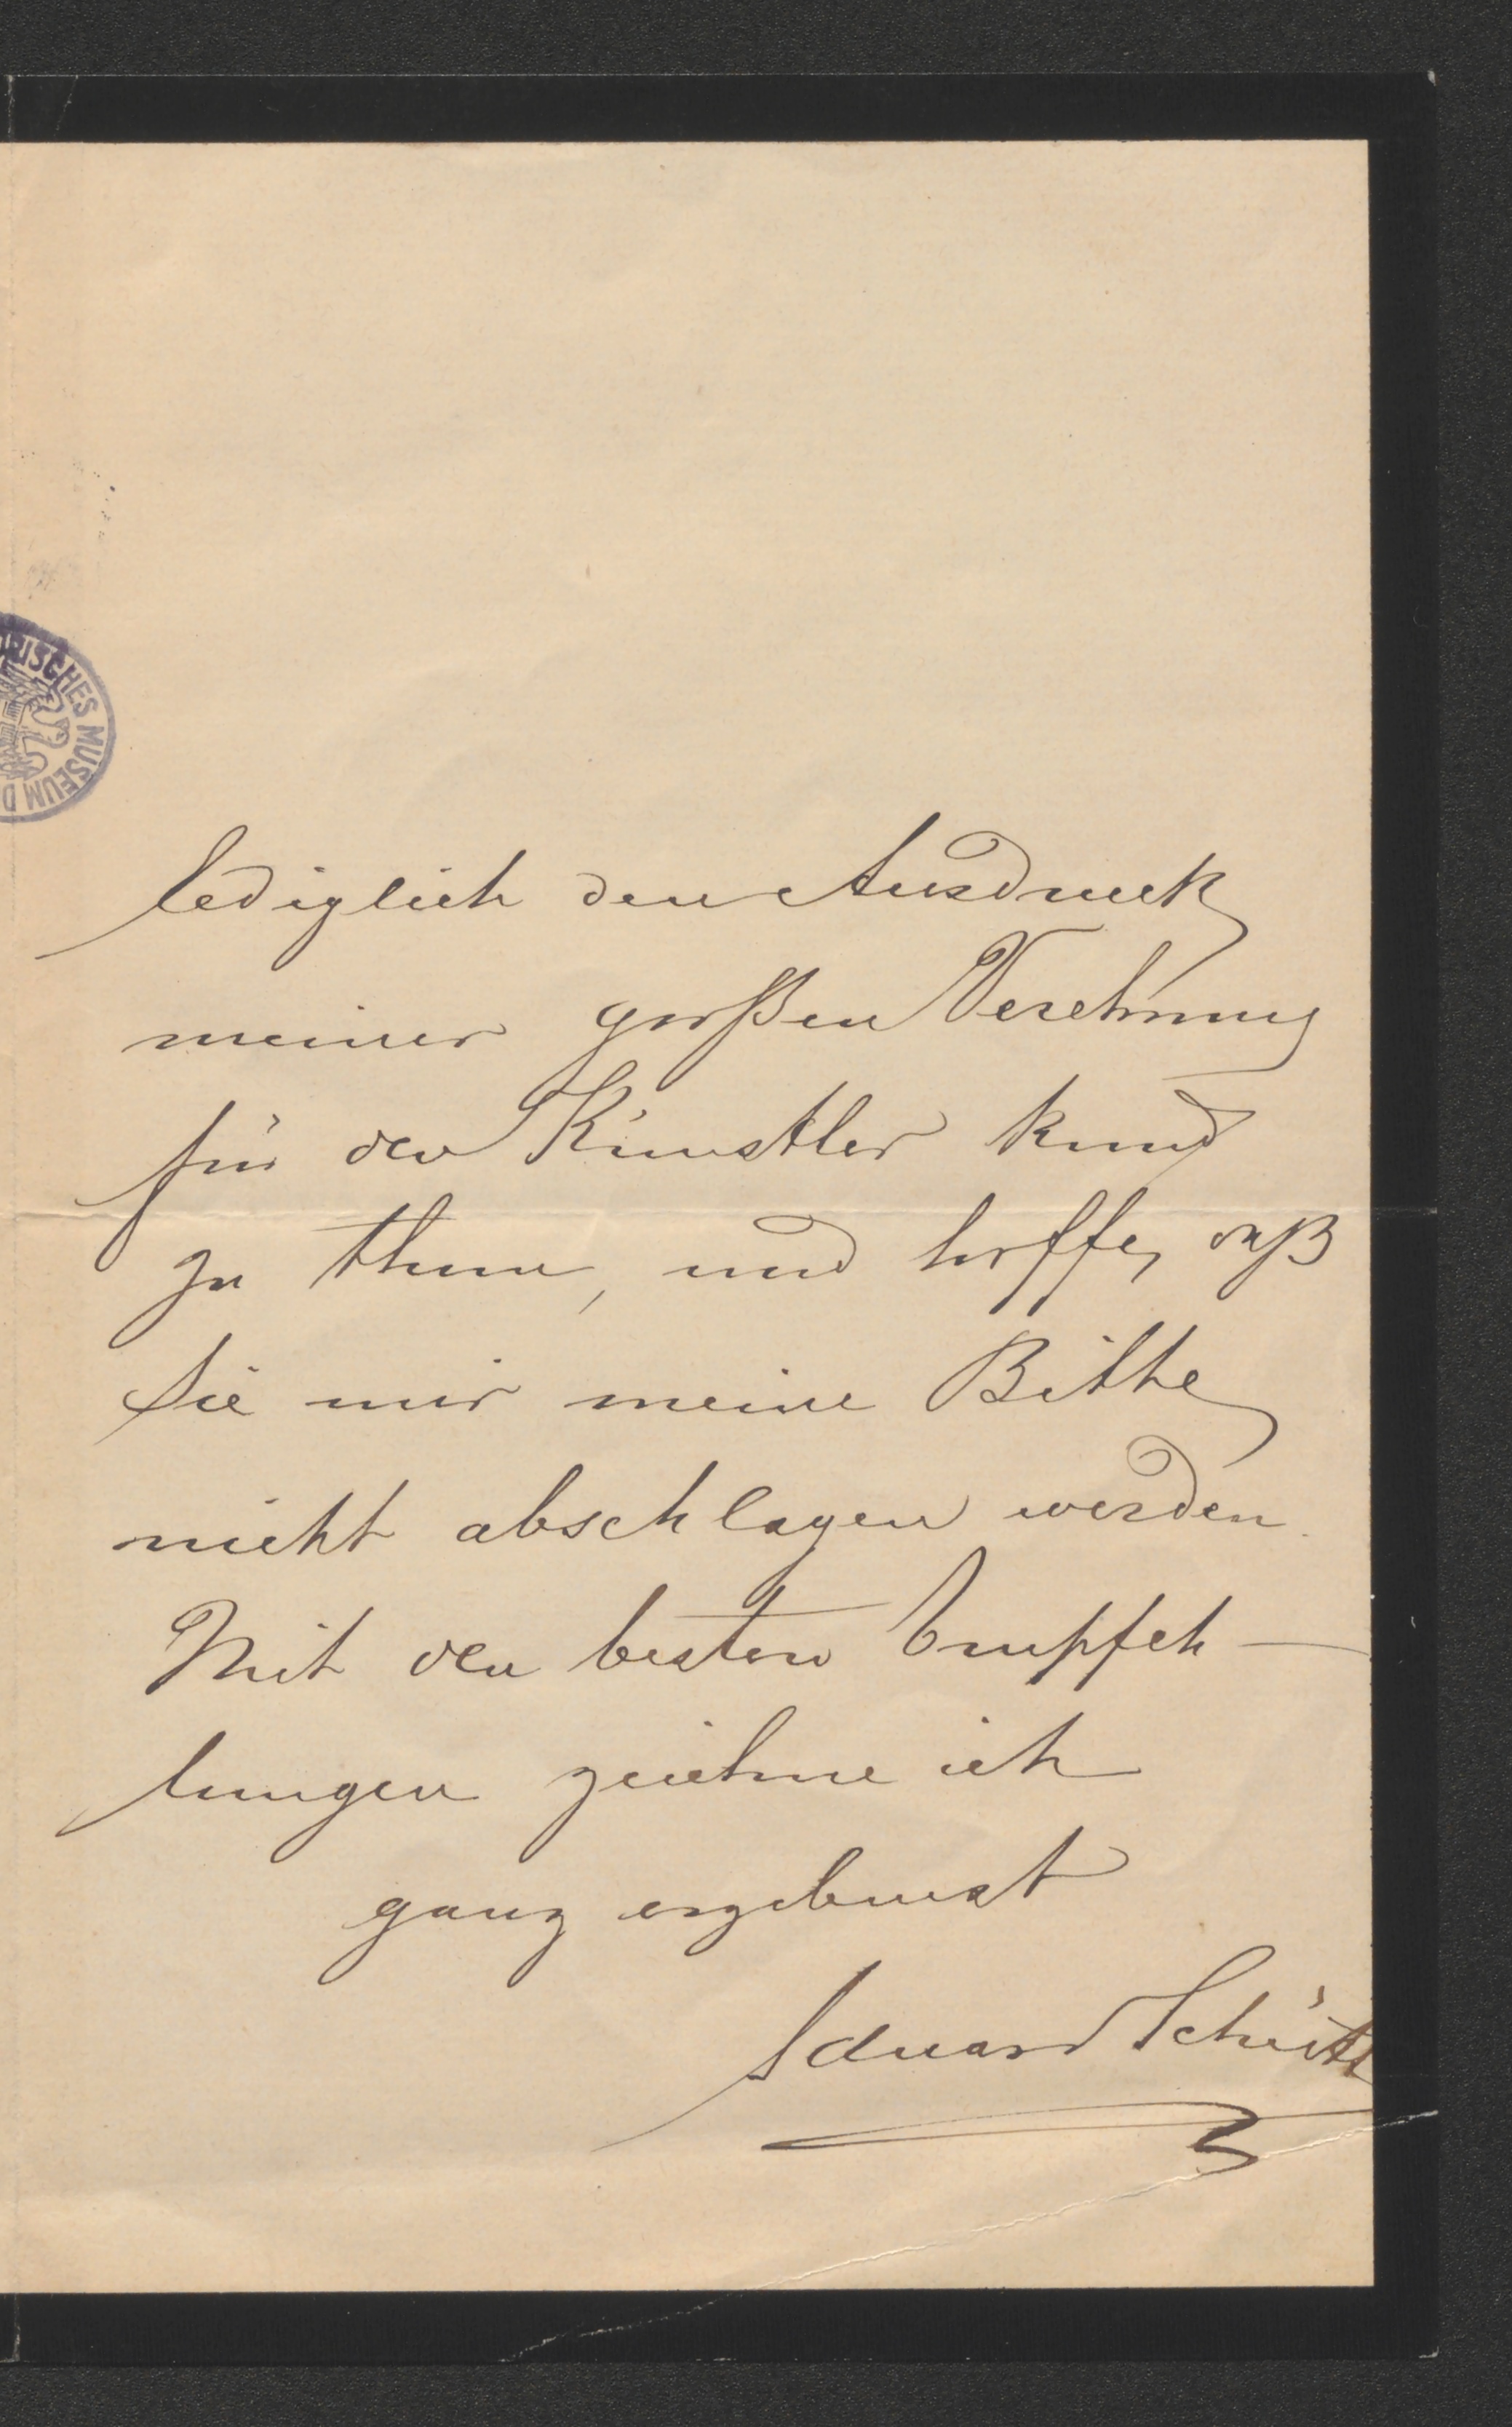 RISCHES MUSEUM D
lediglich den Ausdruck
meiner großen Verehrung
für den Künstler kund
zu thun, und hoffe, daß
Sie mir meine Bitte
nicht abschlagen werden.
Mit den besten Empfeh-
lungen zeichne ich
ganz ergebenst
Eduard Schütt